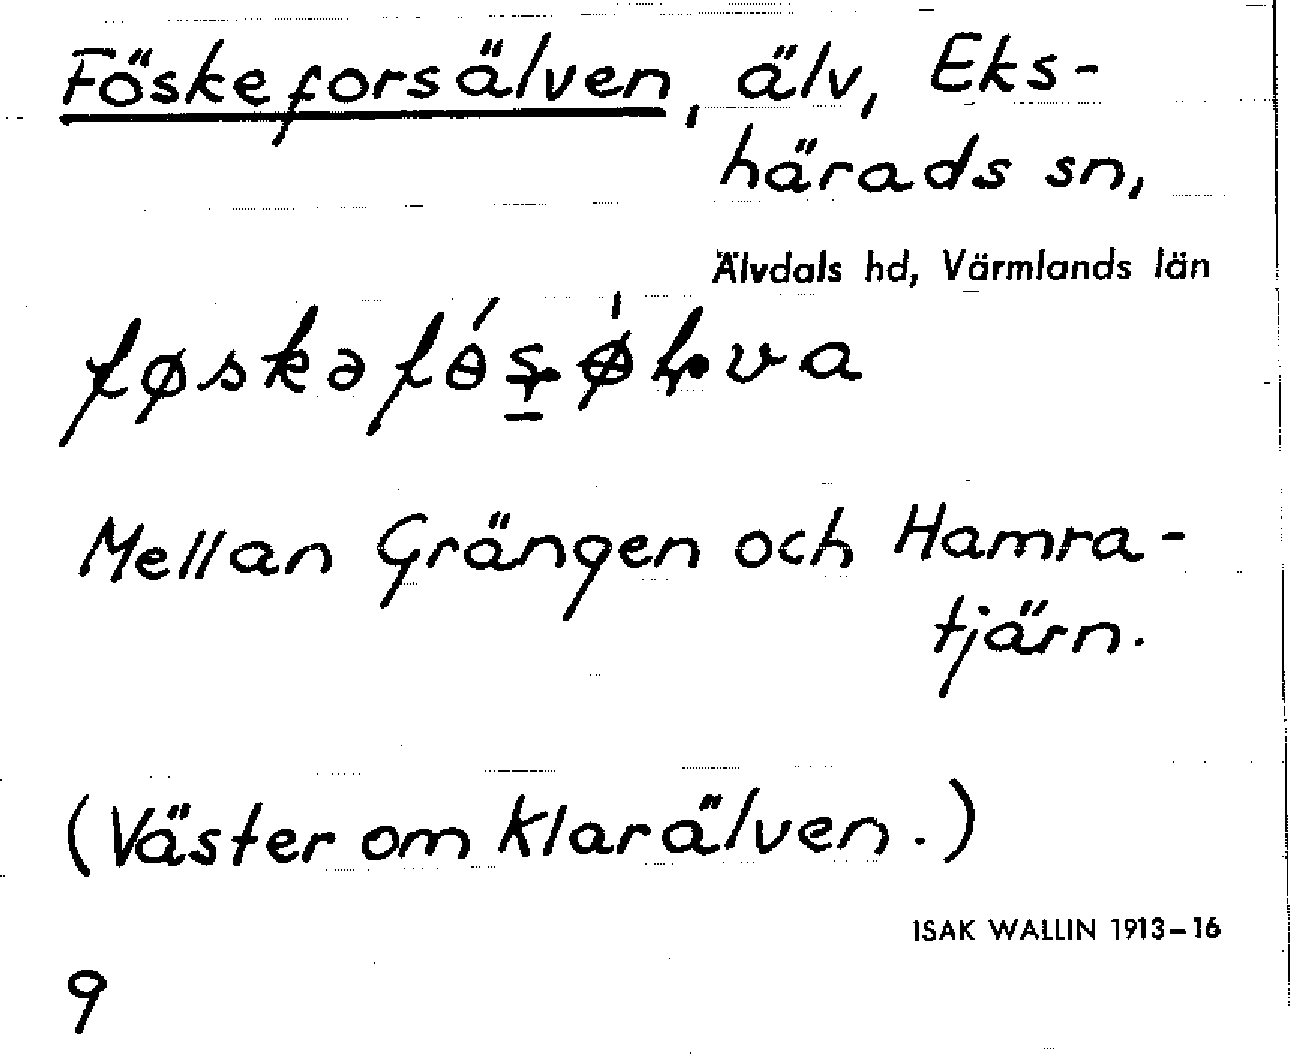 Föskeforsälven, älv, Eks-
härads sn,
Älvdals hd, Värmlands län
Mellan Grängen och Hamra-
tjärn.
(Väster om Klarälven.)
ISAK WALLIN 1913–16
9